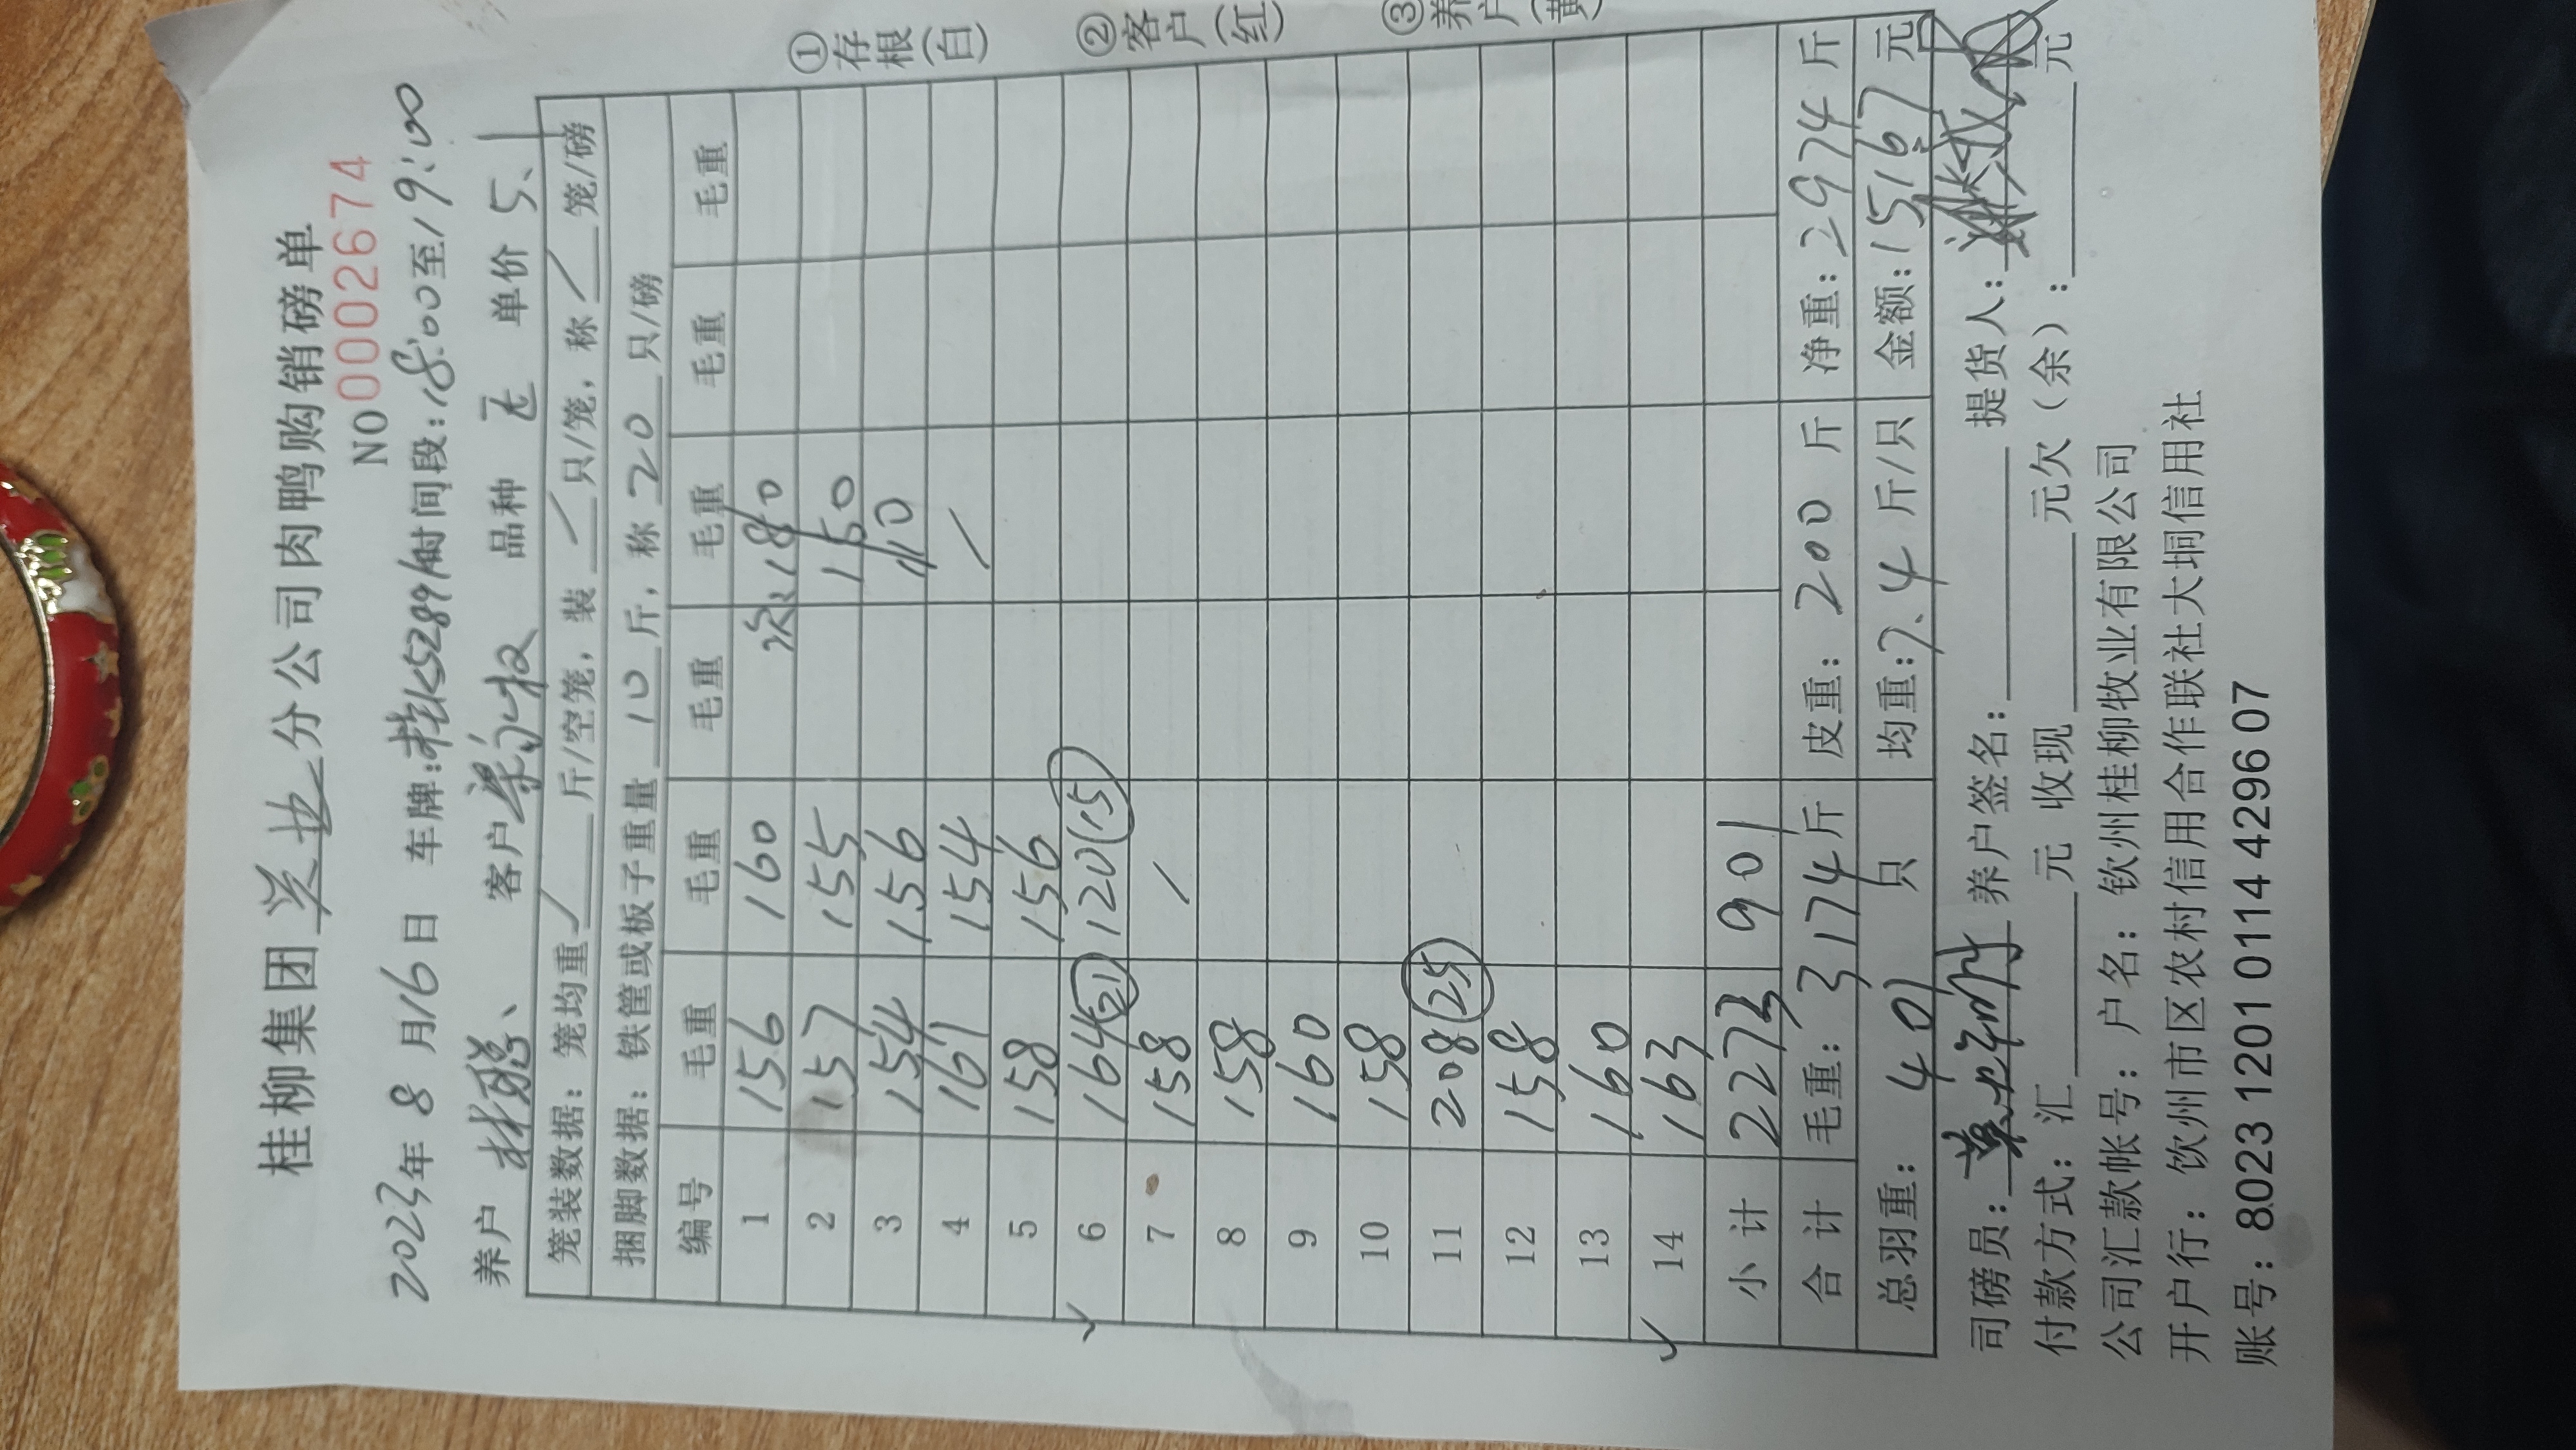 桂柳集团 分公司肉鸭购销磅单
NO 0002674
2023年 8 月 16 日 车牌: 桂K5289 时间段: 18:00至19:00
养户 客户 品种 单价 5.1
笼装数据: 笼均重 / 斤/空笼, 装 / 只/笼, 称 / 笼/磅
捆脚数据: 铁筐或板子重量 10 斤, 称 20 只/磅
编号 毛重 毛重 毛重 毛重 毛重 毛重
1 156 160 次: 180
2 157 155 150
3 154 156 110
4 161 154 /
5 158 156
6 164 (21) 120 (15)
7 158 /
8 158
9 160
10 158
11 208 (25)
12 158
13 160
14 163
小计 2273 901
合计 毛重: 3174 斤 皮重: 200 斤 净重: 2974 斤
总羽重: 401 只 均重: 7.4 斤/只 金额: 15167 元
司磅员: 养户签名: 提货人:
付款方式: 汇 元 收现 元欠(余): 元
公司汇款帐号: 户名: 钦州桂柳牧业有限公司
开户行: 钦州市区农村信用合作联社大垌信用社
账号: 8023 1201 0114 4296 07
①存根(白)
②客户(红)
③养户(黄)